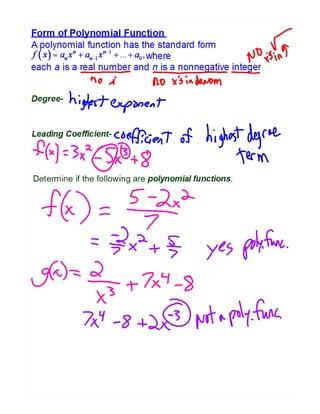 Form of Polynomial Function
A polynomial function has the standard form
f(x) = aₙxⁿ + aₙ₋₁xⁿ⁻¹ + ... + a₀, where
NO x's in √
each a is a real number and n is a nonnegative integer
no i
no x's in denom
Degree- highest exponent
Leading Coefficient- coefficient of highest degree term
f(x) = 3x² - 5x³ + 8
Determine if the following are polynomial functions.
f(x) = (5 - 2x²)/7
= -2/7 x² + 5/7 yes poly. func.
g(x) = 2/x³ + 7x⁴ - 8
7x⁴ - 8 + 2x⁻³ not a poly. func